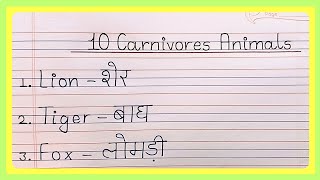 10 Carnivores Animals
1. Lion – शेर
2. Tiger – बाघ
3. Fox – लोमड़ी